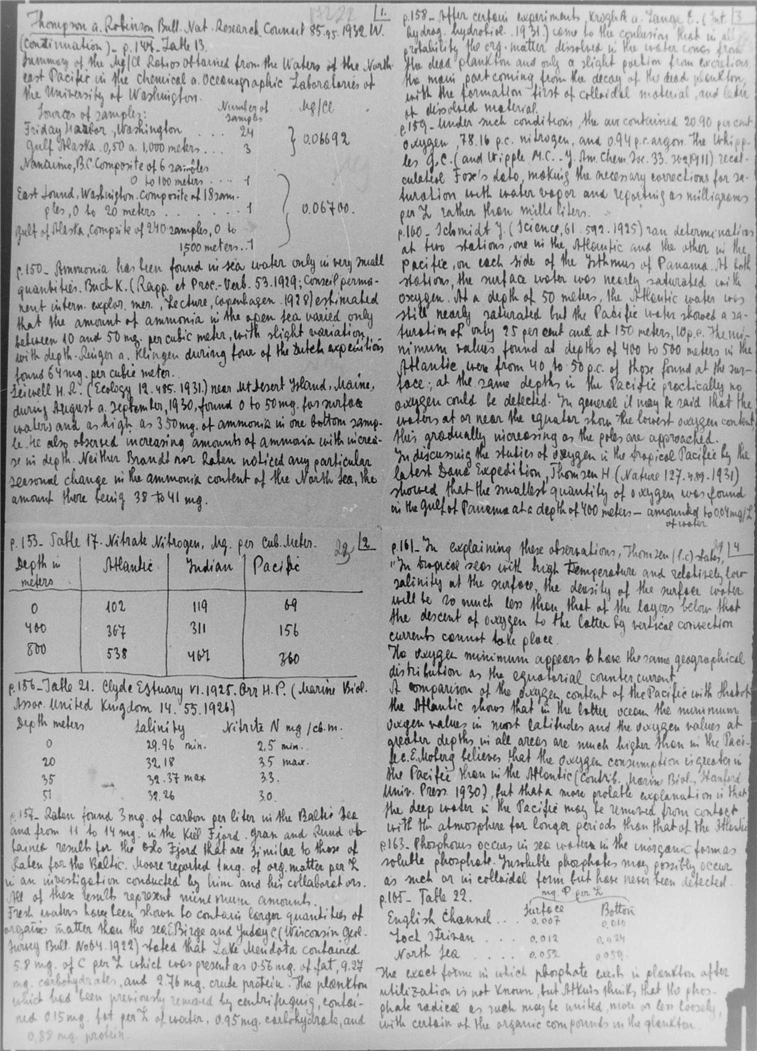 1.
Thompson a. Robinson Bull. Nat. Research Council 85.95.1932 W.
(Continuation) - p.148. Table 13.
Summary of the Mg/Cl Ratios obtained from the Waters of the North
east Pacific in the chemical a. Oceanographic Laboratories of
the University of Washington.
Sources of samples: Number of samples Mg/Cl
Friday Harbor, Washington .... 24
Gulf Alaska. 0,50 a. 1,000 meters... 3 } 0.06692
Nanaimo, B.C. Composite of 6 samples
0 to 100 meters .... 1
East Sound, Washington. Composite of 18 sam-
ples, 0 to 20 meters ....... 1 } 0.06700.
Gulf of Alaska, Composite of 240 samples, 0 to
1500 meters.. 1
p.150 - Ammonia has been found in sea water only in very small
quantities. Buch K. (Rapp. et Proc.-Verb. 53.1929; Conseil perma-
nent intern. explor. mer., Lecture, Copenhagen. 1928) estimated
that the amount of ammonia in the open sea varied only
between 10 and 50 mg. per cubic meter, with slight variation
with depth. Ringer a. Klingen during four of the Dutch expeditions
found 64 mg. per cubic meter.
Seiwell H.R. (Ecology 12.485.1931) near Mt Desert Island, Maine,
during August a. September, 1930, found 0 to 50 mg. for surface
waters and as high as 350 mg. of ammonia in one bottom samp-
le. He also observed increasing amounts of ammonia with increa-
se in depth. Neither Brandt nor Raben noticed any particular
seasonal change in the ammonia content of the North Sea, the
amount there being 38 to 41 mg.
2
p.153 - Table 17. Nitrate Nitrogen, Mg. per Cub. Meter.
Depth in meters Atlantic Indian Pacific
0 102 119 69
400 367 311 156
800 538 467 360
p.156 - Table 21. Clyde Estuary VI.1925. Orr H.P. (Marine Biol.
Assoc. United Kingdom 14. 55. 1926)
Depth meters Salinity Nitrite N mg/cb.m.
0 29.96 min. 2,5 min.
20 32.18 3.5 max.
35 32.37 max 3.3.
51 32.26 3.0.
p.157 - Raben found 3 mg. of carbon per liter in the Baltic Sea
and from 11 to 14 mg. in the Keil Fjord. Gran and Ruud ob-
tained result for the Oslo Fjord that are similar to those of
Raben for the Baltic. Moore reported 1 mg. of org. matter per L
in an investigation conducted by him and his collaborators.
All of these results represent minimum amounts.
Fresh waters have been shown to contain larger quantities of
organic matter than the sea. Birge and Juday C (Wisconsin Geol.
Survey Bull. No 64. 1922) stated that Lake Mendota contained
5.8 mg. of C per L which was present as 0.56 mg. of fat, 9.27
mg. carbohydrates, and 2.76 mg. crude protein. The plankton
which had been previously removed by centrifuging, contai-
ned 0.15 mg. fat per L of water, 0.95 mg. carbohydrate, and
0.88 mg. protein.
3
p.158 - After certain experiments, Krogh a. Lange E. (Int.
hydrog. hydrobiol. 1931) came to the conclusing that in all
probability the org. matter dissolved in the water comes from
the dead plankton and only a slight portion from excretions,
the main part coming from the decay of the dead plankton,
with the formation first of colloidal material, and later
of dissolved material.
p.159 - Under such conditions, the air contained 20.90 per cent.
oxygen, 78.16 p.c. nitrogen, and 0.94 p.c. argon. The Whipp-
les G.C. (and Wipple M.C. - J. Am. Chem. Soc. 33. 1911) recal-
culated Fox's data, making the necesary corrections for sa-
turation with water vapor and reporting as milligrams
per L rather than milliliters.
p.160 - Schmidt J. (Science, 61. 592. 1925) ran determinations
at two stations, one in the Atlantic and the other in the
Pacific, on each side of the Isthmus of Panama. At both
stations, the surface water was nearly saturated with
oxygen. At a depth of 50 meters, the Atlantic water was
still nearly saturated but the Pacific water showed a sa-
turation of only 25 per cent and at 150 meters, 10 p.c. The mi-
nimum values found at depths of 400 to 500 meters in the
Atlantic, were from 40 to 50 p.c. of those found at the sur-
face; at the same depths in the Pacific practically no
oxygen could be detected. In general it may be said that the
waters at or near the equator show the lowest oxygen content
this gradually increasing as the poles are approached.
In discussing the studies of oxygen in the tropical Pacific by the
latest Dana Expedition, Thomsen H (Nature 127.489.1931)
showed that the smallest quantity of oxygen was found
in the Gulf of Panama at a depth of 400 meters - amounted to 0,04 mg/L
of water
4
p.161 - In explaining these observations, Thomsen (l.c.) states,
"In tropical seas with high temperature and relatively low
salinity at the surface, the density of the surface water
will be so much less than that of the layers below that
the descent of oxygen to the latter by vertical convection
currents cannot take place.
The oxygen minimum appears to have the same geographical
distribution as the equatorial counter current.
A comparison of the oxygen content of the Pacific with that of
the Atlantic shows that in the latter ocean the minimum
oxygen values in most latitudes and the oxygen values at
greater depths in all areas are much higher than in the Paci-
fic. E. Moberg believes that the oxygen consumption is greater in
the Pacific than in the Atlantic (Contrib. Marin Biol., Stanford
Univ. Press. 1930), but that a more probable explanation is that
the deep water in the Pacific may be removed from contact
with the atmosphere for longer periods than that of the Atlantic
p.163. Phosphorus occurs in sea water in the inorganic form as
soluble phosphate. Insoluble phosphates may possibly occur
as such or in colloidal form but have never been detected.
p.165 - Table 22. mg. P per L
Surface Botton
English Channel... 0,007 0,010
Loch Strivan .... 0,012 0,024
North Sea ..... 0,052 0,059.
The exact forme in which phosphate exist in plankton after
utilization is not known, but Atkins thinks that the phos-
phate radical as such may be united, more or less loosely,
with certain of the organic compounds in the plankton.